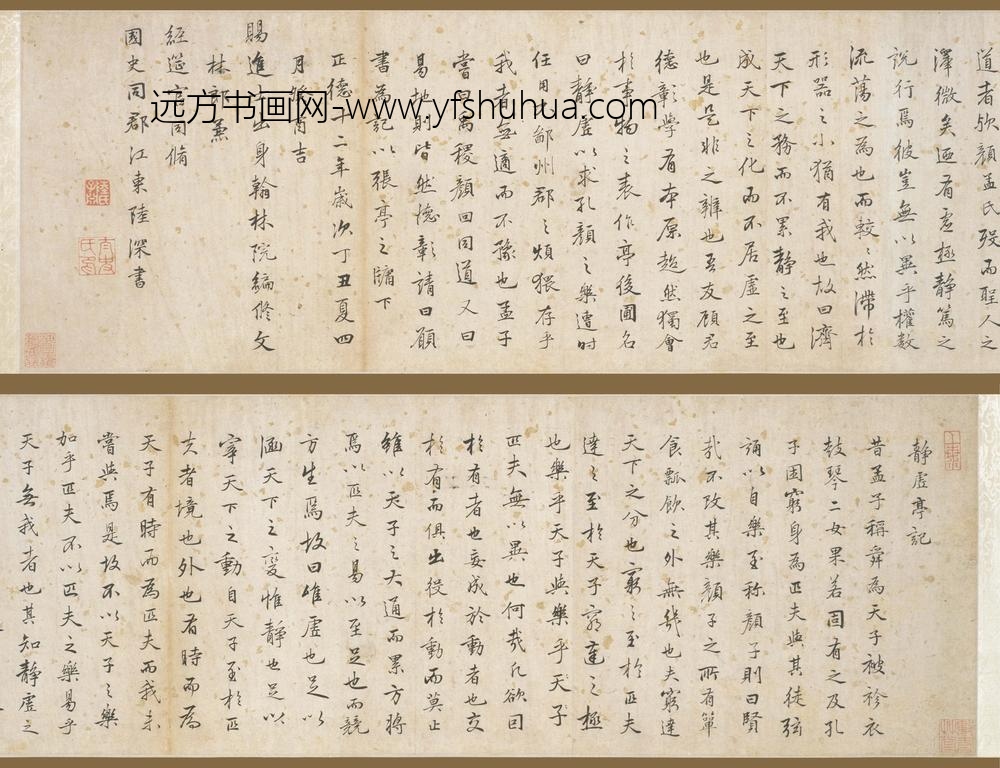 静虚亭記
昔孟子稱舜為天子被袗衣
鼓琴二女果若固有之及孔
子困窮身為匹夫與其徒弦
誦以自樂至称顏子則曰賢
哉不改其樂顏子之所有簞
食瓢飲之外無幾也夫窮達
天下之分也窮之至於匹夫
達之至於天子窮達之極
也樂乎天子與樂乎天子
匹夫無以異也何哉凡欲囙
於有者也妄成於動者也交
於有而俱出役於動而莫止
雖以天子之大通而累方將
焉以匹夫之易以至足也而競
方生焉故曰唯虚也足以
涵天下之變惟静也足以
宰天下之動自天子至於匹
夫者境也外也有時而為
天子有時而為匹夫而我未
嘗與焉是故不以天子之樂
加乎匹夫不以匹夫之樂易乎
天子無我者也其知静虚之
道者欤顏孟氏歿而聖人之
澤微矣迺有虚極静篤之
說行焉彼豈無以異乎權數
流蕩之為也而較之然滯於
形器之小猶有我也故曰濟
天下之務而不累静之至也
成天下之化而不居虚之至
也是是非之辨也吾友顾君
德彰學有本原超然獨會
於事物之表作亭後圃名
曰静虚以求孔顏之樂遭时
任用鄙州郡之煩猥存乎
我者無適而不豫也孟子
嘗曰禹稷顏回同道又曰
易地則皆然德彰請曰願
書為記以張亭之牖下
正德十二年歲次丁丑夏四
月吉
賜進士出身翰林院編修文
林郎兼
經筵同脩
國史同郡江東陸深書
远方书画网-www.yfshuhua.com